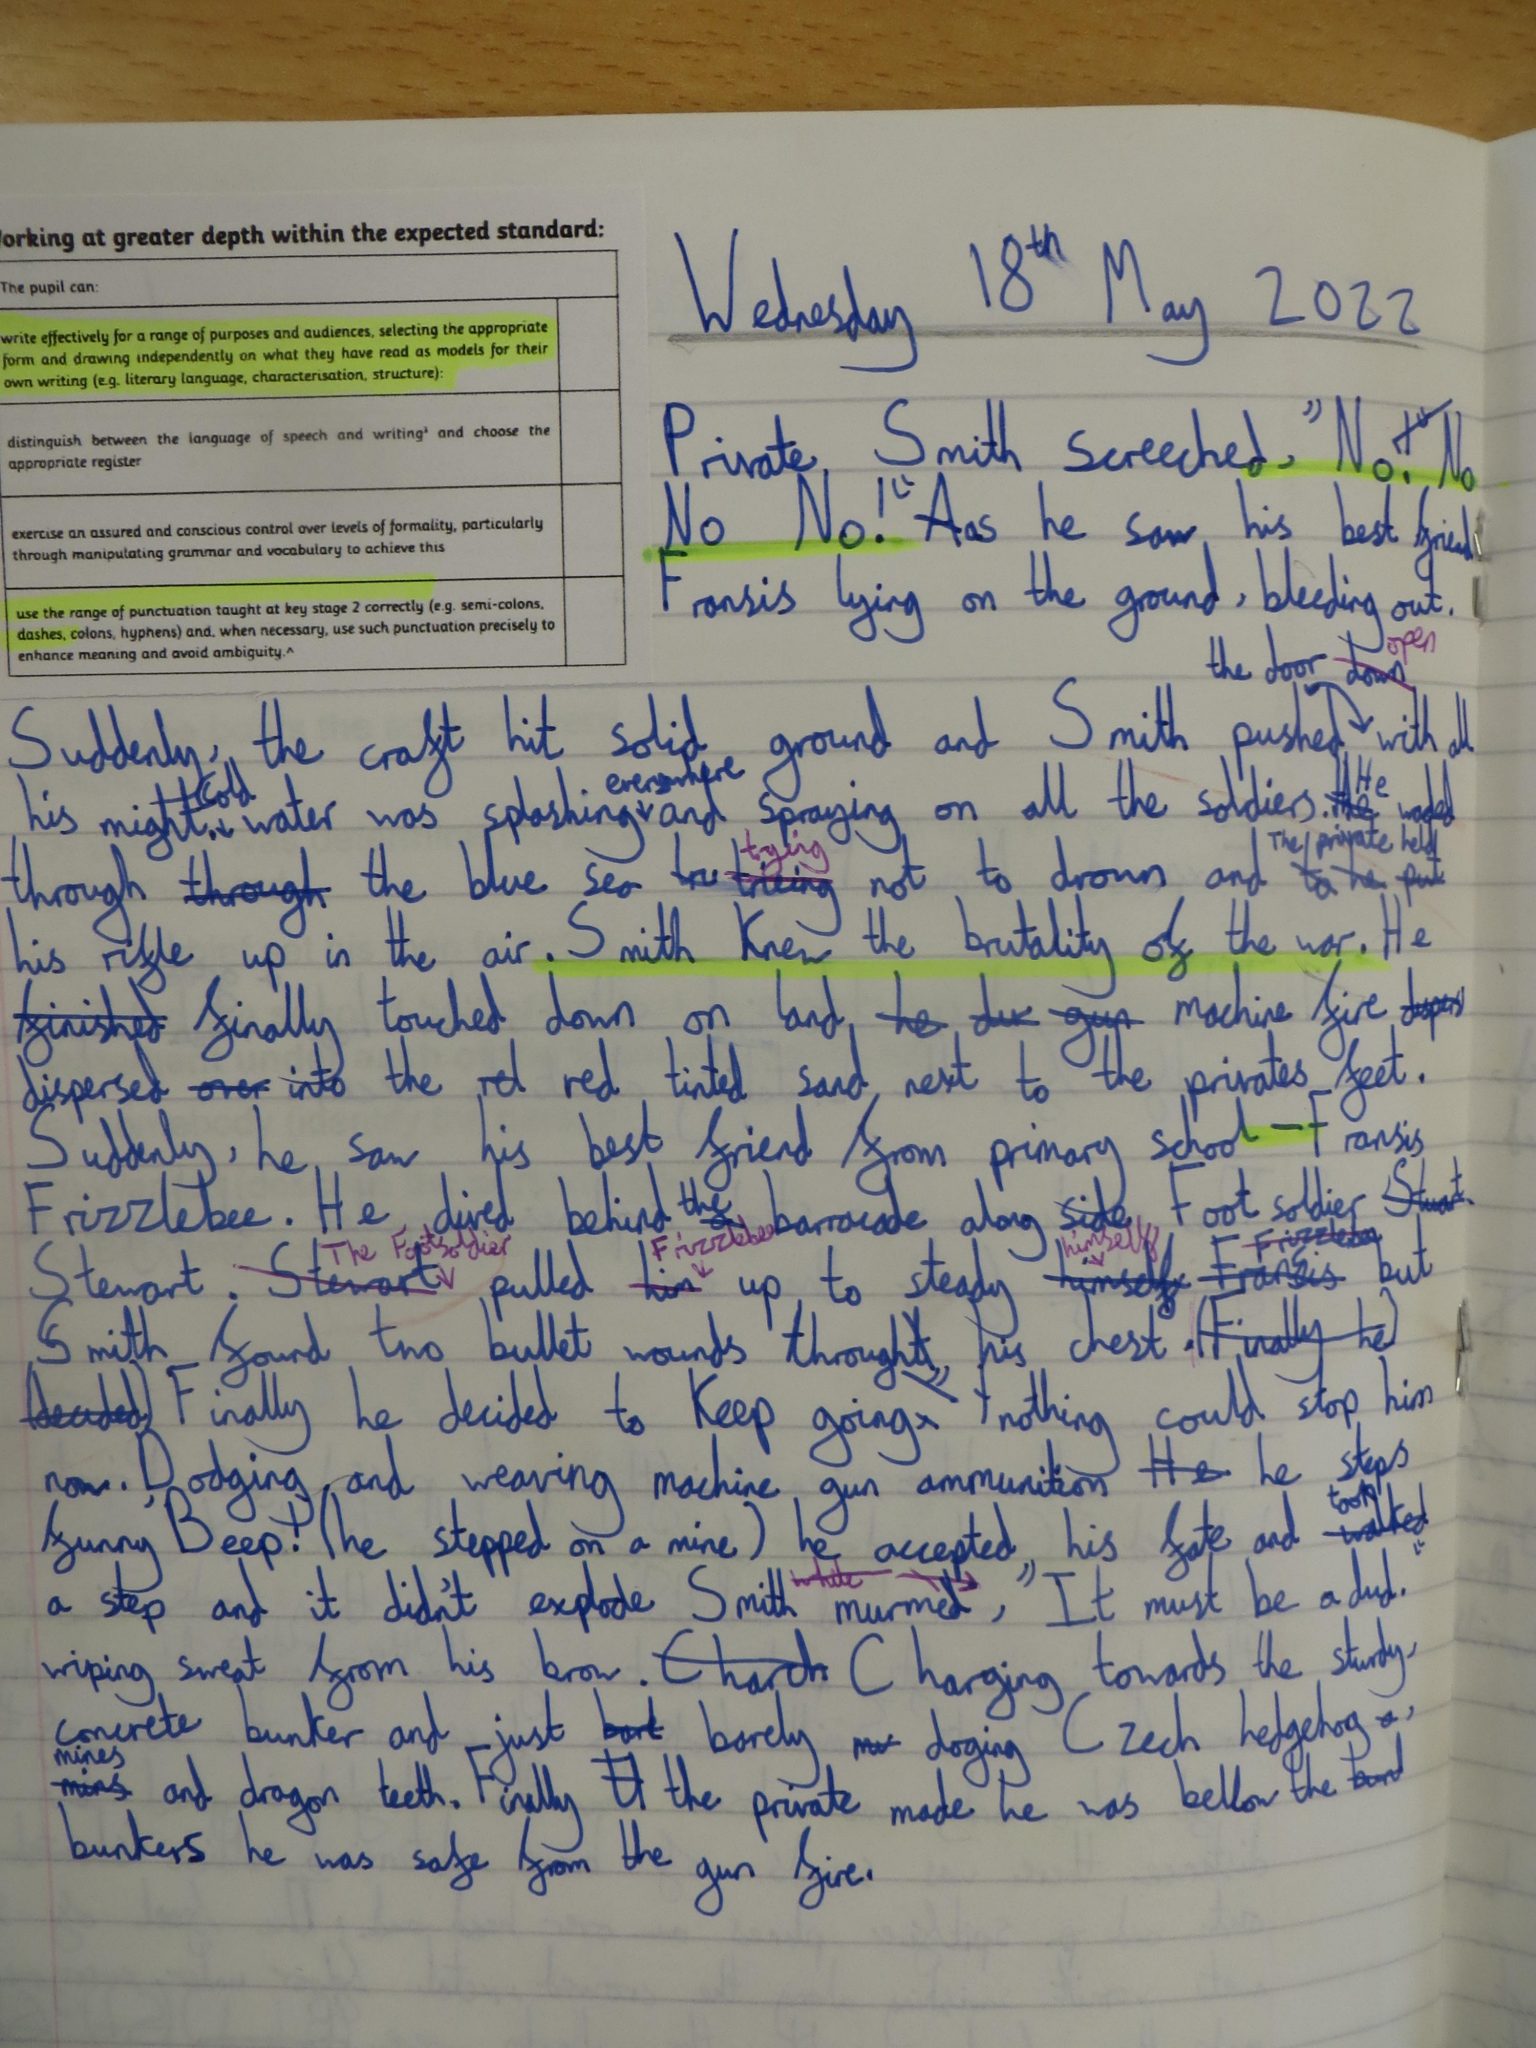 orking at greater depth within the expected standard:
The pupil can:
write effectively for a range of purposes and audiences, selecting the appropriate
form and drawing independently on what they have read as models for their
own writing (e.g. literary language, characterisation, structure):
distinguish between the language of speech and writing³ and choose the
appropriate register
exercise an assured and conscious control over levels of formality, particularly
through manipulating grammar and vocabulary to achieve this
use the range of punctuation taught at key stage 2 correctly (e.g. semi-colons,
dashes, colons, hyphens) and, when necessary, use such punctuation precisely to
enhance meaning and avoid ambiguity.^
Wednesday 18th May 2022
Private Smith screeched, "No! No
No No!" as he saw his best friend
Fransis lying on the ground, bleeding out.
the door down open
Suddenly, the craft hit solid ground and Smith pushed with all
cold everywhere He
his might. water was splashing and spraying on all the soldiers. waded
trying The private held
through through the blue sea tricing not to drown and to he put
his rifle up in the air. Smith knew the brutality of the war. He
finished finally touched down on land, he gun machine fire
dispersed over into the rel red tinted sand next to the privates feet.
Suddenly, he saw his best friend from primary school - Fransis
Frizzlebee. He dived behind the barracade along side Foot soldier Stuart
The Foot soldier Frizzlebee himself Frizzlebee
Stewart. Stewart pulled him up to steady himself Fransis but
Smith found two bullet wounds through his chest. (Finally he)
(decided) Finally he decided to keep going nothing could stop him
now. Dodging and weaving machine gun ammunition He he steps
took
funny Beep! (he stepped on a mine) he accepted his fate and walked
while
a step and it didn't explode Smith murmed, "It must be a dud."
wiping sweat from his brow. Charch Charging towards the sturdy,
concrete bunker and just bart barely doging Czech hedgehog,
mines
mins and dragon teeth. Finally the private made he was bellow the
bunkers he was safe from the gun fire.